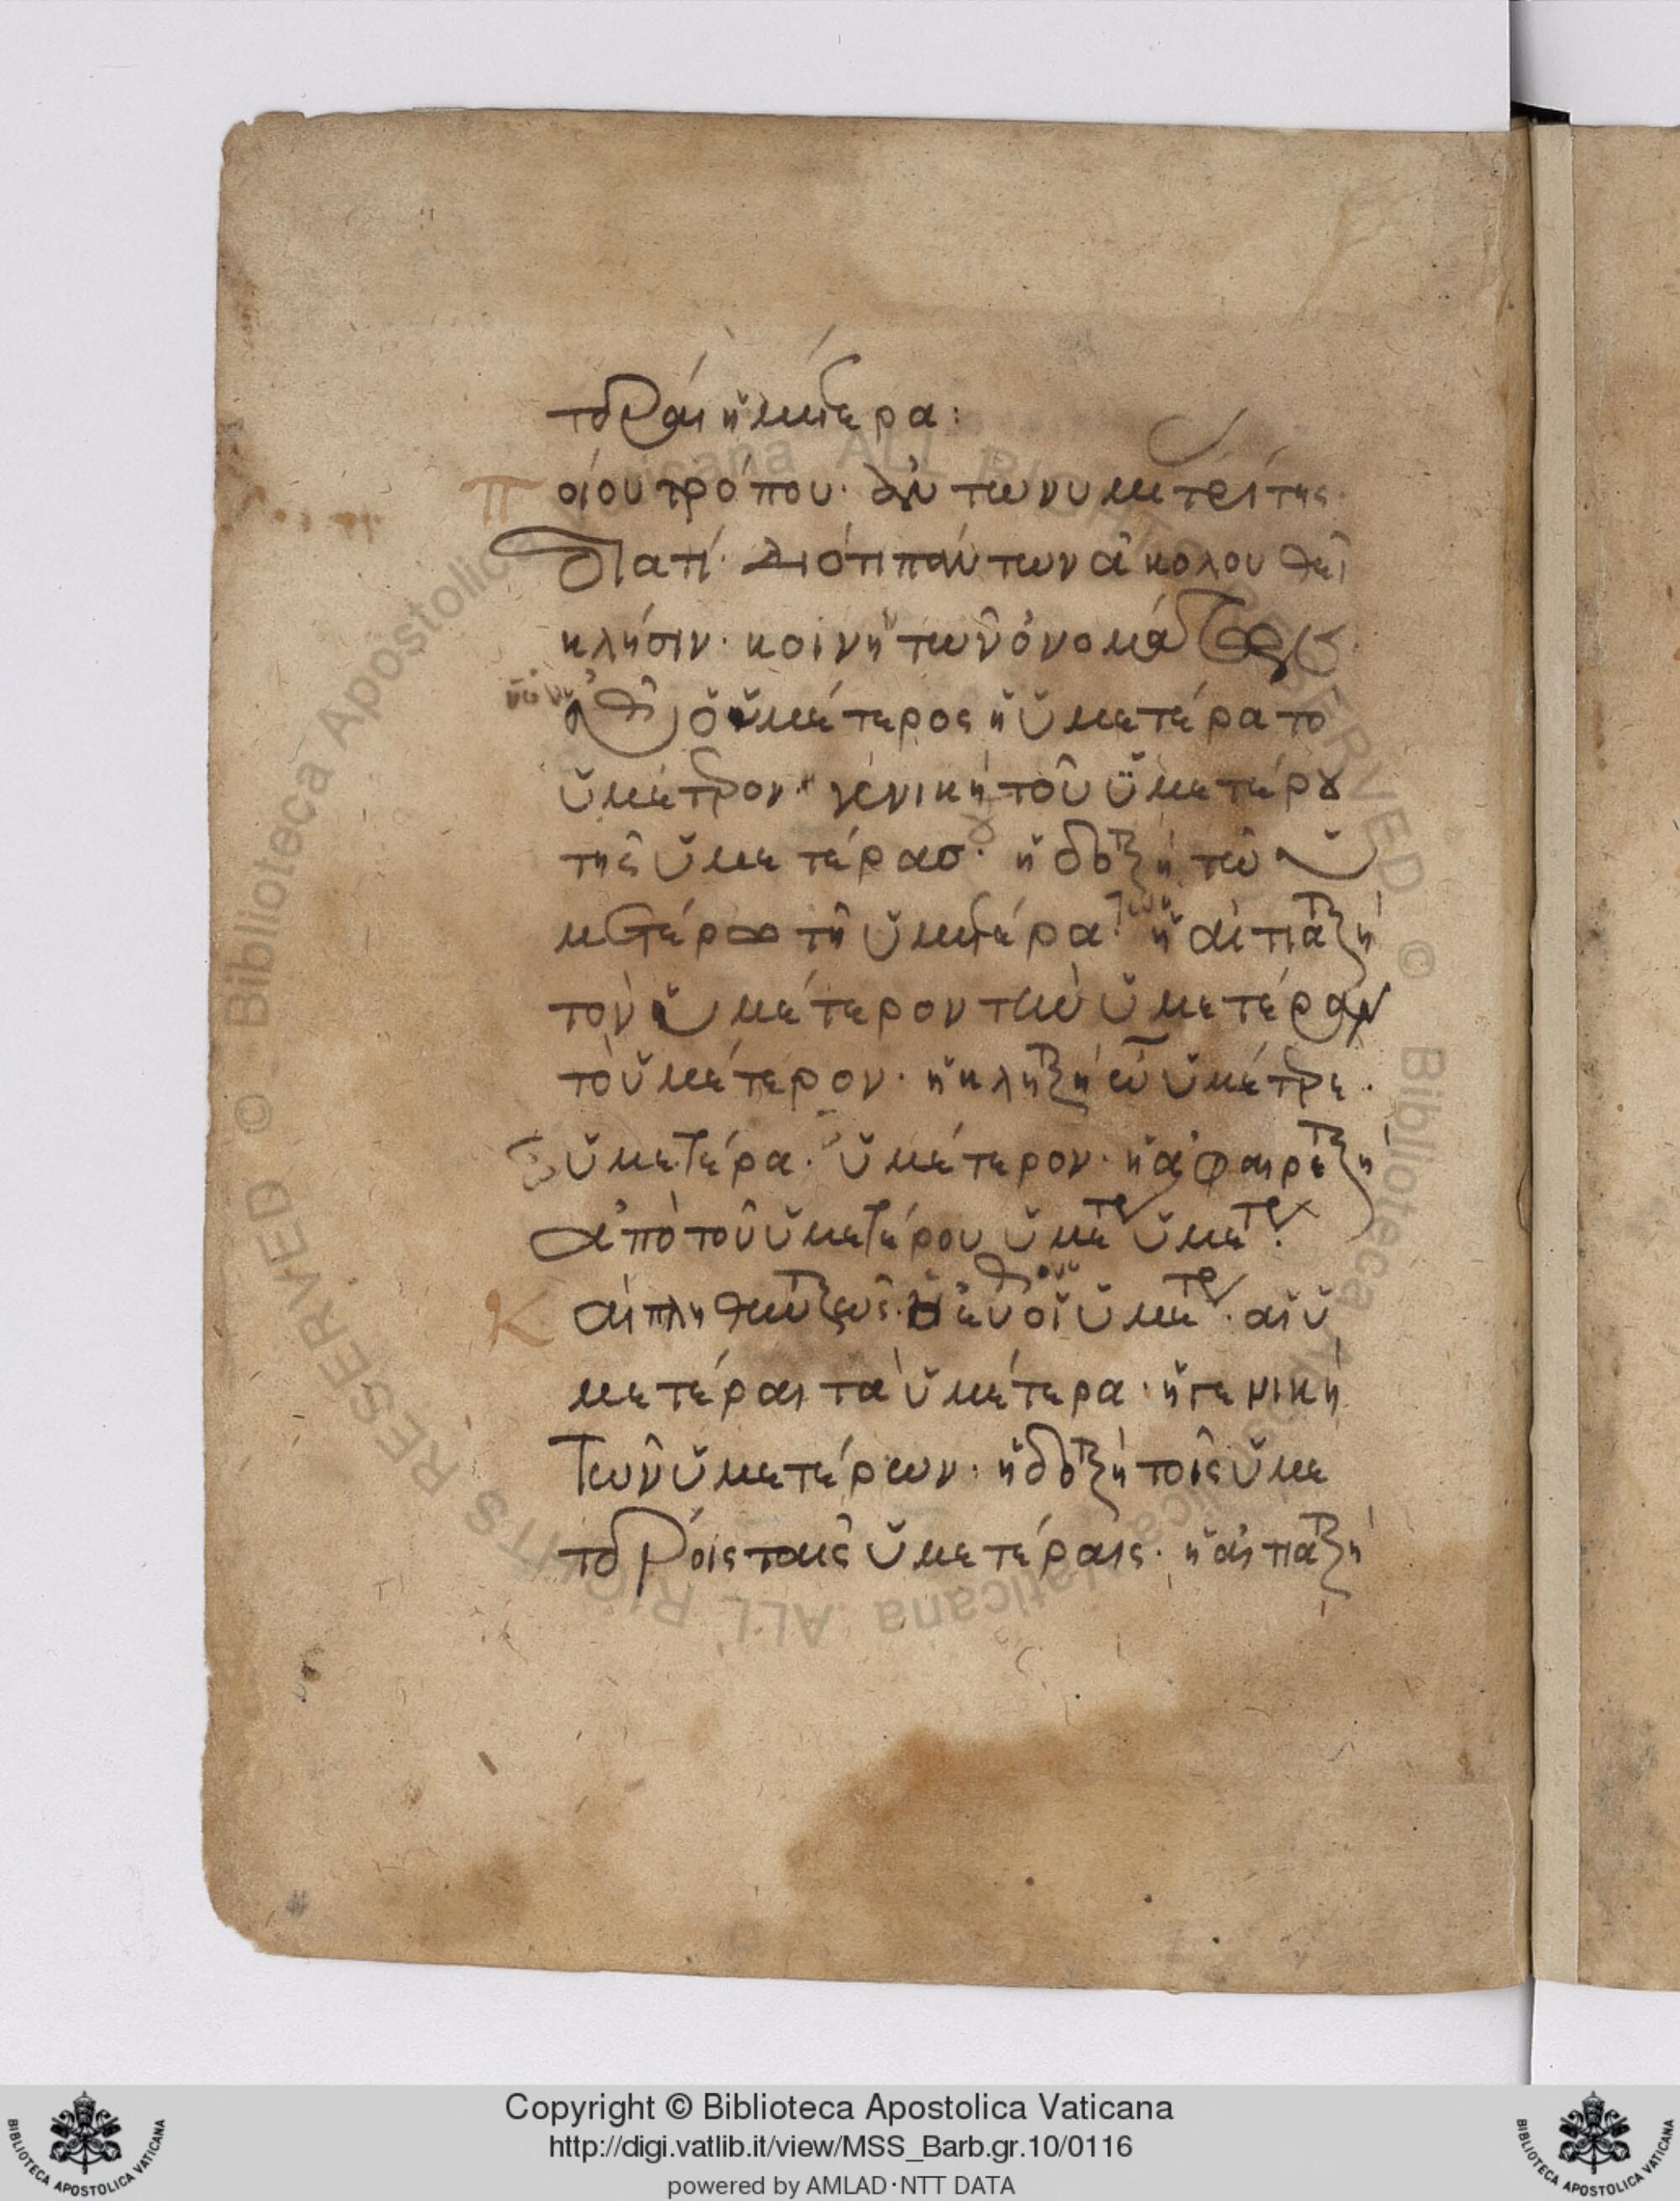 τεραι ἡμετερα:
Ποίου τρόπου· ἀντωνυμ τρίτης·
Διατί· διότι πάντων ἀκολουθεῖ
κλησιν· κοινὴ των ὀνομάτων
ὀρθὴ ὁ ὑμέτερος ἡ ὑμετέρα το
ὑμέτερον· γενικὴ τοῦ ὑμετέρου
της ὑμετέρασ· ἡ δοτικὴ τω ὑ
μετέρω τῆ ὑμετέρα· ἡ αἰτιατικὴ
τὸν ὑμέτερον την ὑμετέραν
τὸ ὑμέτερον· ἡ κλητικὴ ὦ ὑμέτρε·
ὑμετέρα· ὑμέτερον· ἡ ἀφαιρετικὴ
ἀπὸ τοῦ ὑμετέρου ὑμετερ ὑμετερ·
Και πληθυντικῶς· ὀρθὴ οἱ ὑμετερ· αἱ ὑ
μετέραι τὰ ὑμέτερα· ἡ γενικὴ
Των ὑμετέρων· ἡ δοτικὴ τοῖς ὑμε
τεροις ταις ὑμετέραις· ἡ αἰτιατικὴ
Copyright © Biblioteca Apostolica Vaticana
http://digi.vatlib.it/view/MSS_Barb.gr.10/0116
powered by AMLAD·NTT DATA
BIBLIOTECA APOSTOLICA VATICANA
BIBLIOTECA APOSTOLICA VATICANA
© Biblioteca Apostolica Vaticana ALL RIGHTS RESERVED © Biblioteca Apostolica Vaticana ALL RIGHTS RESERVED